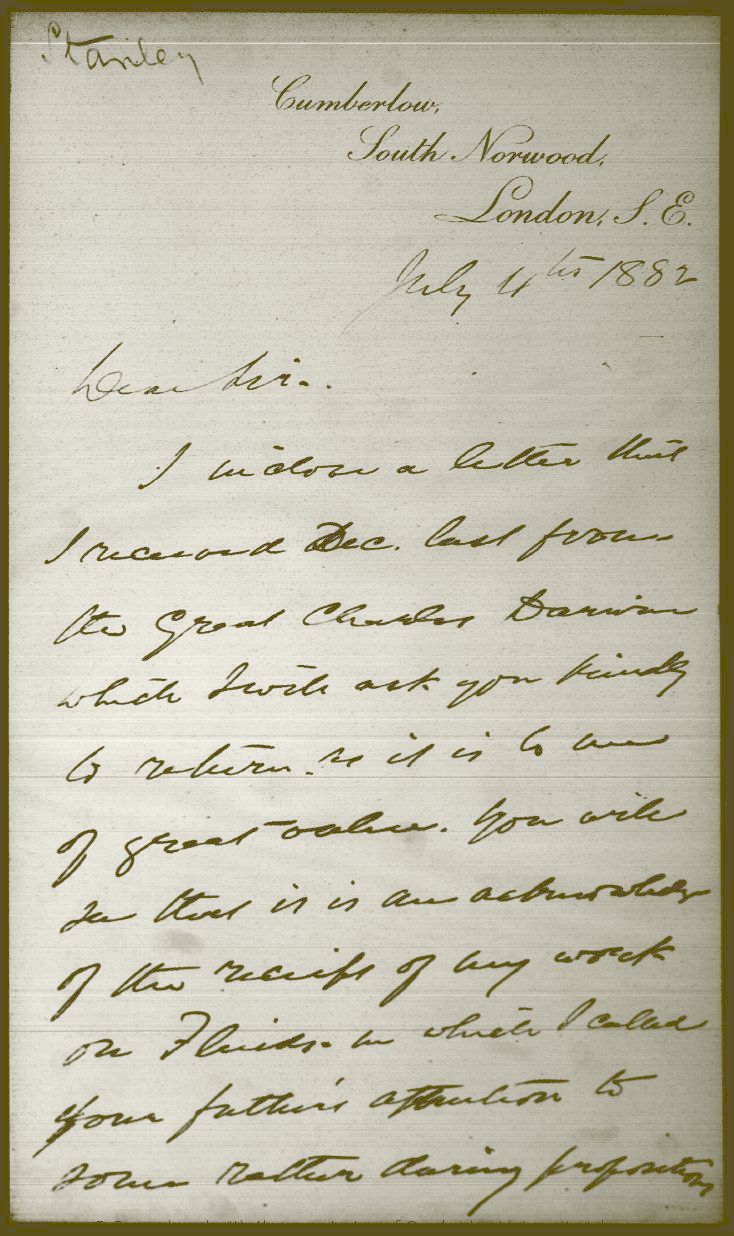 Stanley
Cumberlow,
South Norwood,
London, S. E.
July 4th 1882
Dear Sir.
I inclose a letter that
I received Dec. last from
the Great Charles Darwin
which I will ask you kindly
to return as it is to me
of great value. You will
see that it is an acknowledge
of the receipt of my work
on Fluids in which I called
your father's attention to
some rather daring propositions